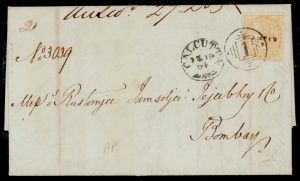 2
No 3039
CALCUTTA
19
64
1
Messrs Rustomjee Jamsetjee Jejeebhoy & Co
Bombay
AP